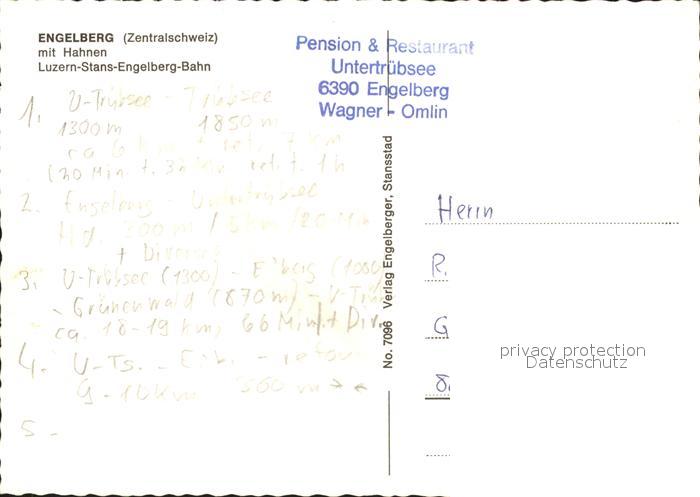 ENGELBERG (Zentralschweiz)
mit Hahnen
Luzern-Stans-Engelberg-Bahn
Pension & Restaurant
Untertrübsee
6390 Engelberg
Wagner - Omlin
1. U-Trübsee - Trübsee
1300 m 1850 m
ca 6 km + ret. 7 km
(20 Min. t. 32 ret. t. 1h
2. Engelberg - Untertrübsee
Hd. 300 m / 5 km / 20 Min
+ Divers
3. U-Trübsee (1300) - (1000
Grünenwald (870 m) - U-Trü
ca. 18-19 km, 66 Min/t Div.
4. U-Ts. - - retour
9-10 km 560 m
5 -
No. 7096 Verlag Engelberger, Stansstad
Herrn
R.
G
privacy protection
Datenschutz